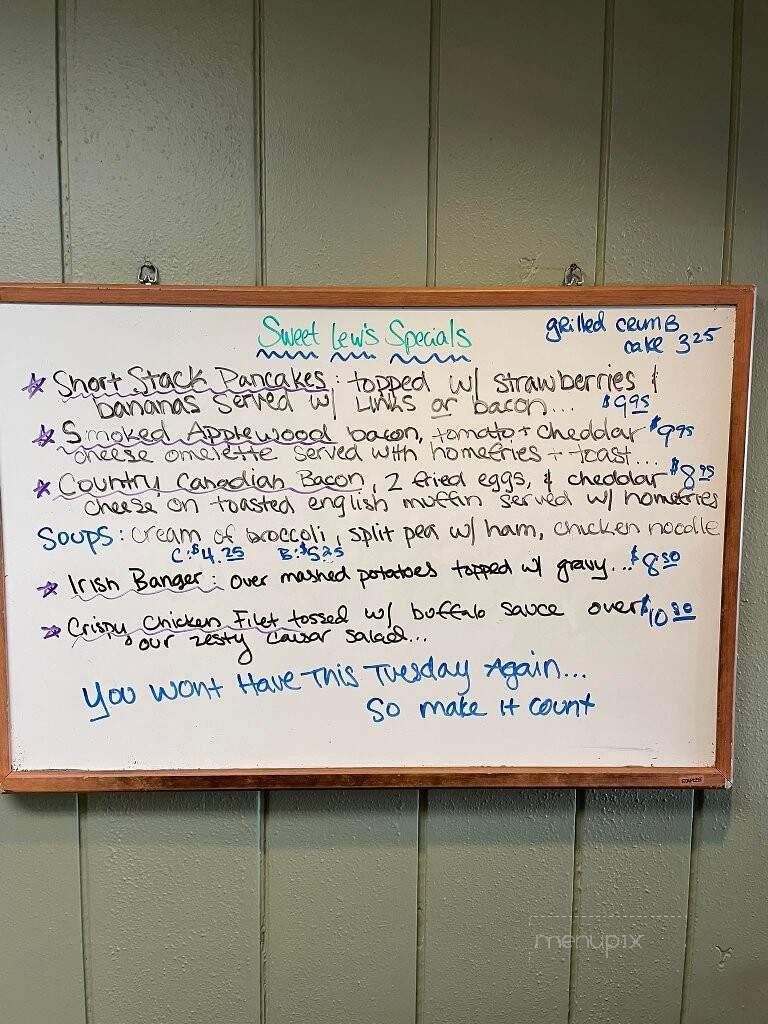 Sweet Lew's Specials
grilled crumb
cake 3 25
Short Stack Pancakes: topped w/ strawberries &
bananas served w/ links or bacon... $9 95
Smoked Applewood bacon, tomato + cheddar $9 95
cheese omelette served with homefries + toast...
Country Canadian Bacon, 2 fried eggs, & cheddar $8 95
cheese on toasted english muffin served w/ homefries
Soups: cream of broccoli, split pea w/ ham, chicken noodle
C:$4.25 B:$5.25
Irish Banger: over mashed potatoes topped w/ gravy... $8 50
Crispy Chicken Filet tossed w/ buffalo sauce over $10 50
our zesty caesar salad...
You Wont Have This Tuesday Again...
So make it count
STAPLES
menupix